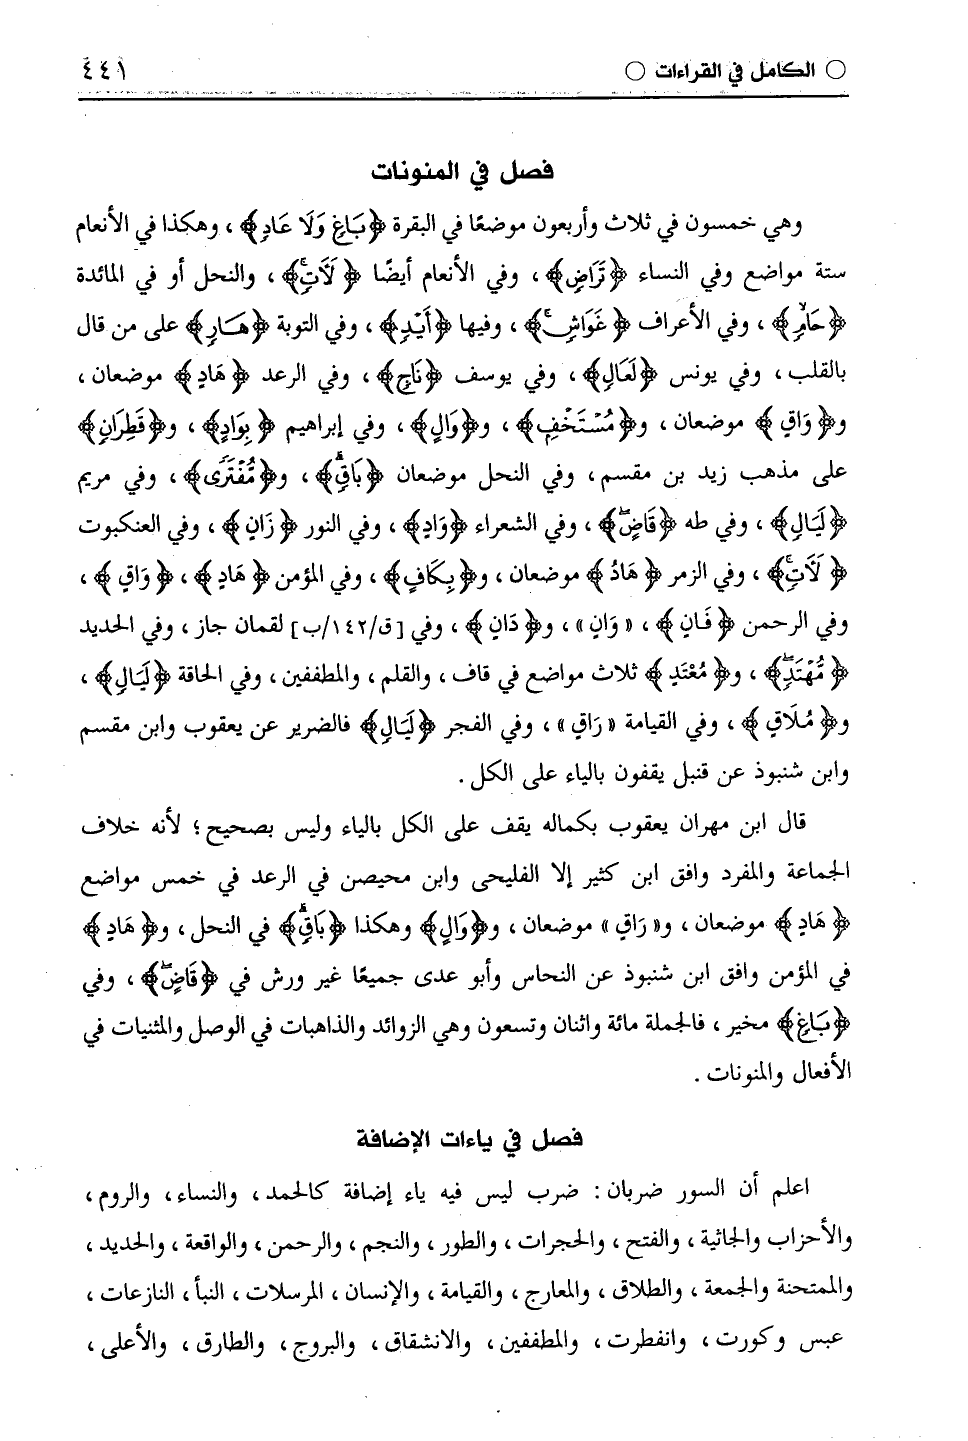 ○ الكامل في القراءات ○ ٤٤١
فصل في المنونات
وهي خمسون في ثلاث وأربعون موضعًا في البقرة ﴿بَاغٍ وَلَا عَادٍ﴾ ، وهكذا في الأنعام
ستة مواضع وفي النساء ﴿تَرَاضٍ﴾ ، وفي الأنعام أيضًا ﴿لَآتٍ﴾ ، والنحل أو في المائدة
﴿حَامٍ﴾ ، وفي الأعراف ﴿غَوَاشٍ﴾ ، وفيها ﴿أَيْدٍ﴾ ، وفي التوبة ﴿هَارٍ﴾ على من قال
بالقلب ، وفي يونس ﴿لَعَالٍ﴾ ، وفي يوسف ﴿نَاجٍ﴾ ، وفي الرعد ﴿هَادٍ﴾ موضعان ،
و﴿وَاقٍ﴾ موضعان ، و﴿مُسْتَخْفٍ﴾ ، و﴿وَالٍ﴾ ، وفي إبراهيم ﴿بِوَادٍ﴾ ، و﴿قَطِرَانٍ﴾
على مذهب زيد بن مقسم ، وفي النحل موضعان ﴿بَاقٍ﴾ ، و﴿مُّفْتَرًى﴾ ، وفي مريم
﴿لَيَالٍ﴾ ، وفي طه ﴿قَاضٍ﴾ ، وفي الشعراء ﴿وَادٍ﴾ ، وفي النور ﴿زَانٍ﴾ ، وفي العنكبوت
﴿لَآتٍ﴾ ، وفي الزمر ﴿هَادٍ﴾ موضعان ، و﴿بِكَافٍ﴾ ، وفي المؤمن ﴿هَادٍ﴾ ، ﴿وَاقٍ﴾ ،
وفي الرحمن ﴿فَانٍ﴾ ، « وَانٍ » ، و﴿دَانٍ﴾ ، وفي [ق/١٤٢/ب] لقمان جاز ، وفي الحديد
﴿مُّهْتَدٍ﴾ ، و﴿مُعْتَدٍ﴾ ثلاث مواضع في قاف ، والقلم ، والمطففين ، وفي الحاقة ﴿لَيَالٍ﴾ ،
و﴿مُلَاقٍ﴾ ، وفي القيامة « رَاقٍ » ، وفي الفجر ﴿لَيَالٍ﴾ فالضرير عن يعقوب وابن مقسم
وابن شنبوذ عن قنبل يقفون بالياء على الكل .
قال ابن مهران يعقوب بكماله يقف على الكل بالياء وليس بصحيح ؛ لأنه خلاف
الجماعة والمفرد وافق ابن كثير إلا الفليحى وابن محيصن في الرعد في خمس مواضع
﴿هَادٍ﴾ موضعان ، و« رَاقٍ » موضعان ، و﴿وَالٍ﴾ وهكذا ﴿بَاقٍ﴾ في النحل ، و﴿هَادٍ﴾
في المؤمن وافق ابن شنبوذ عن النحاس وأبو عدى جميعًا غير ورش في ﴿قَاضٍ﴾ ، وفي
﴿بَاغٍ﴾ مخير ، فالجملة مائة واثنان وتسعون وهي الزوائد والذاهبات في الوصل والمثنيات في
الأفعال والمنونات .
فصل في ياءات الإضافة
اعلم أن السور ضربان : ضرب ليس فيه ياء إضافة كالحمد ، والنساء ، والروم ،
والأحزاب والجاثية ، والفتح ، والحجرات ، والطور ، والنجم ، والرحمن ، والواقعة ، والحديد ،
والممتحنة والجمعة ، والطلاق ، والمعارج ، والقيامة ، والإنسان ، المرسلات ، النبأ ، النازعات ،
عبس وكورت ، وانفطرت ، والمطففين ، والانشقاق ، والبروج ، والطارق ، والأعلى ،